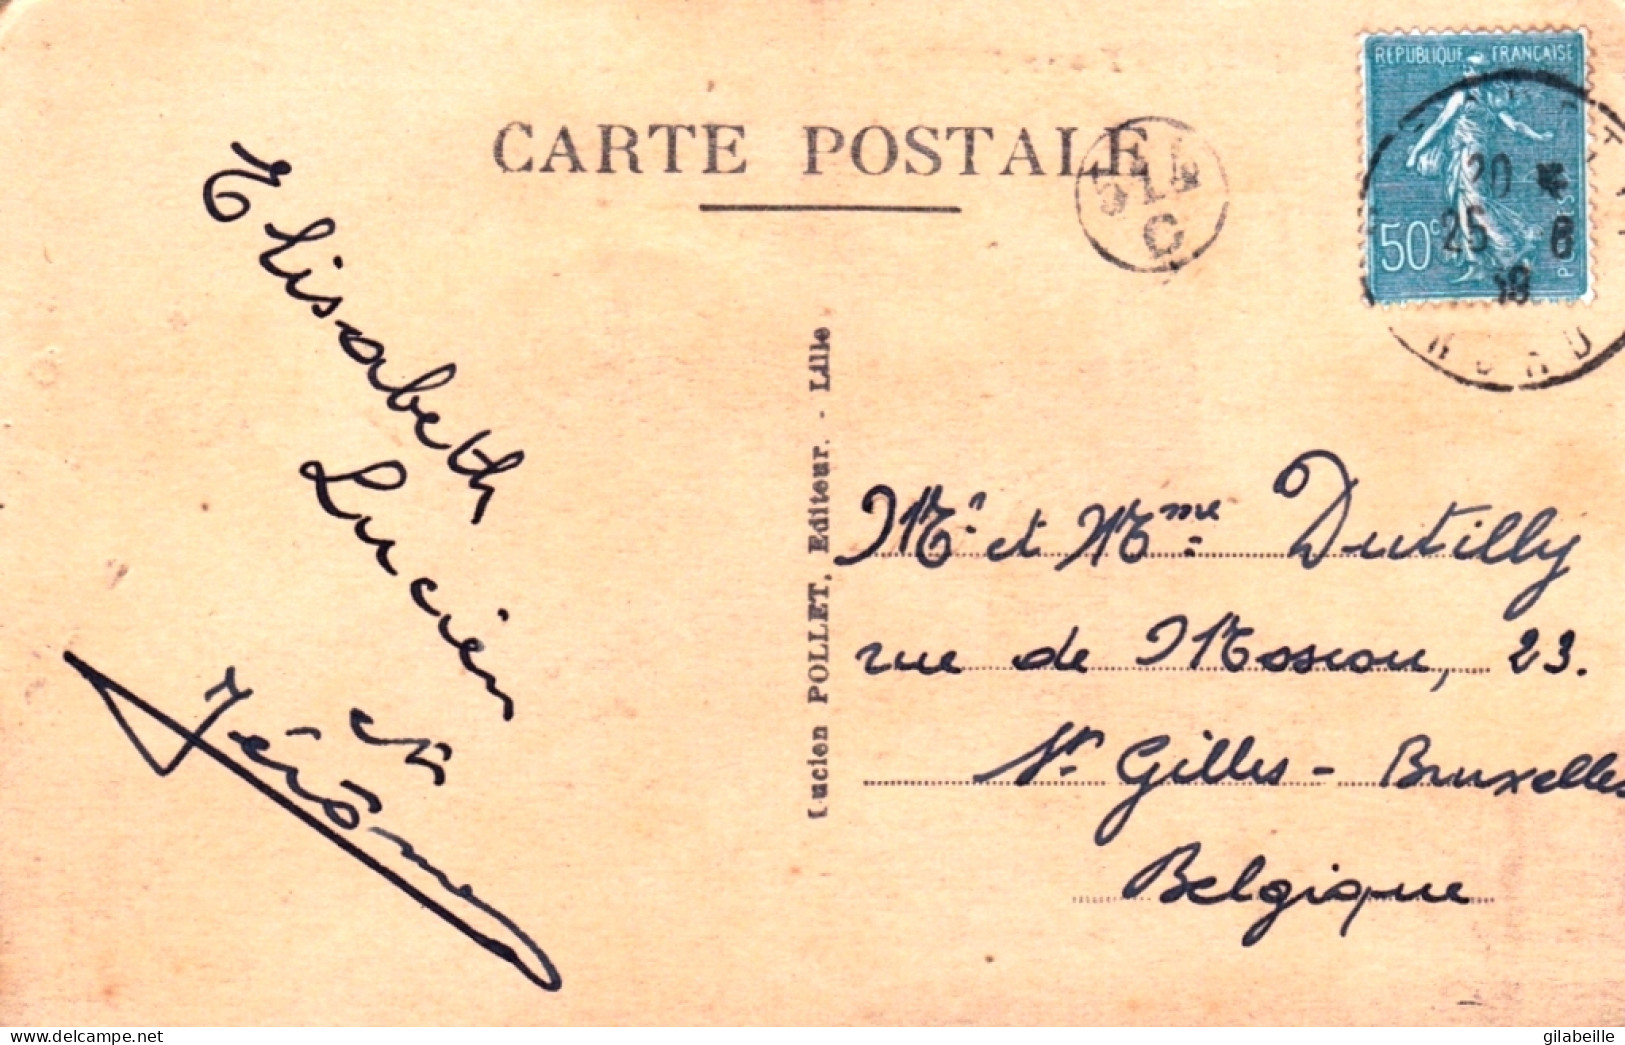 CARTE POSTALE
REPUBLIQUE FRANÇAISE
50c
POSTES
20
25 6
NORD
C
Elisabeth
Lucien
et
Jérôme
Lucien POLLET, Editeur. - Lille
Mr et Mme Dutilly
rue de Moscou, 23.
St Gilles - Bruxelles
Belgique
delcampe.net
gilabeille